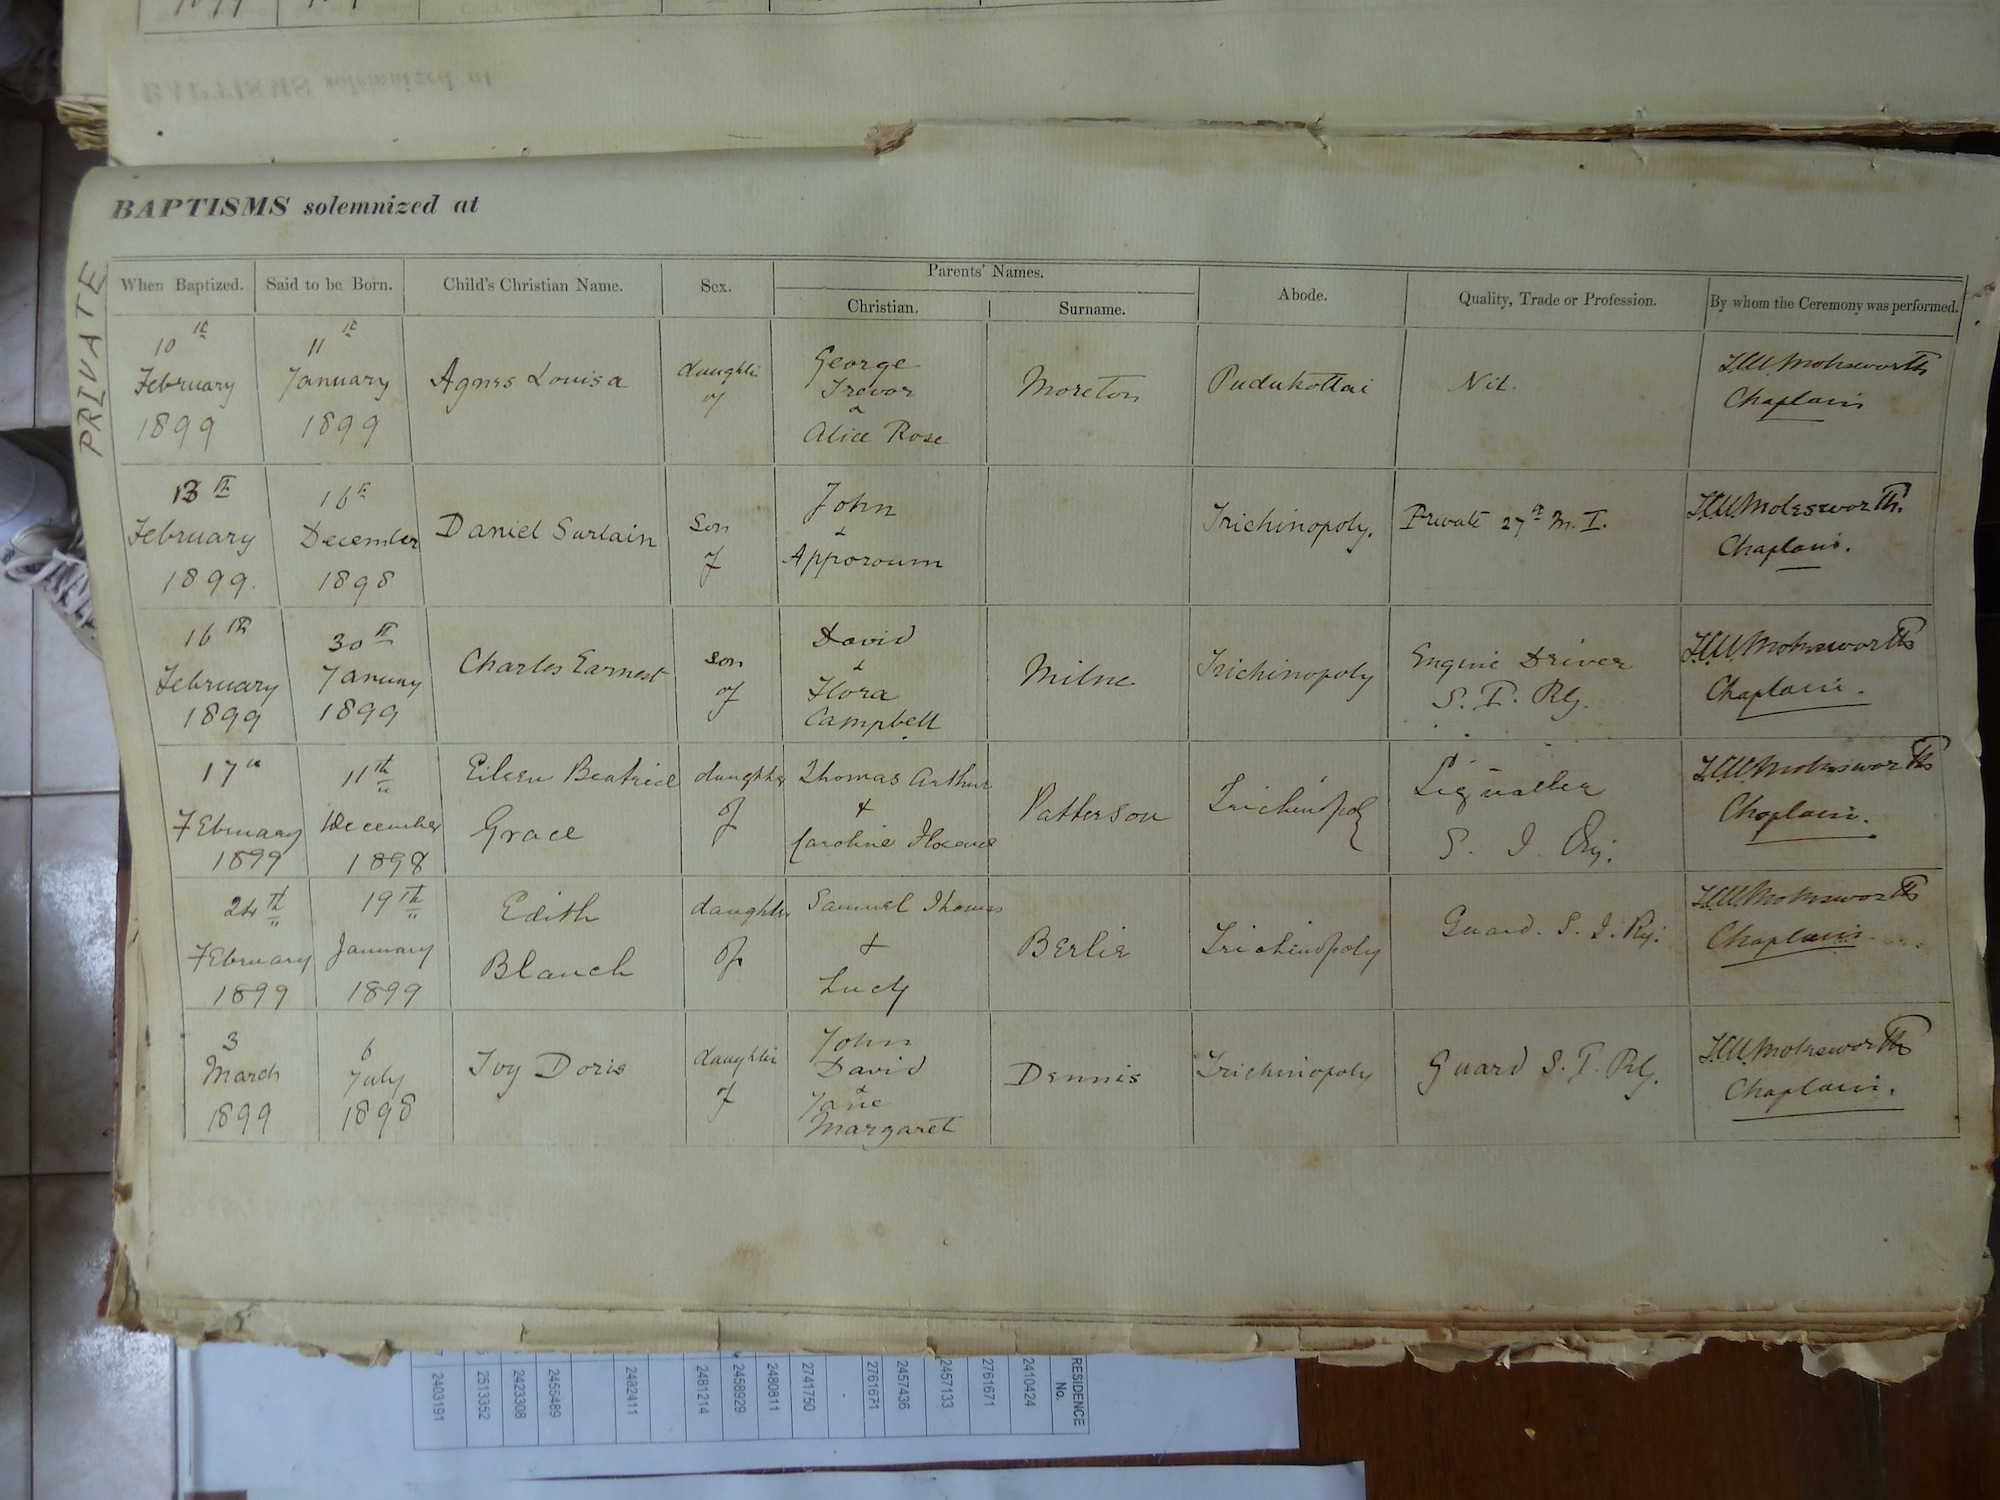 BAPTISMS solemnized at
PRIVATE
When Baptized.
Said to be Born.
Child's Christian Name.
Sex.
Parents' Names.
Christian.
Surname.
Abode.
Quality, Trade or Profession.
By whom the Ceremony was performed.
10th
February
1899
11th
January
1899
Agnes Louisa
daughter
of
George
Trevor
&
Alice Rose
Moreton
Pudukottai
Nil.
Molesworth
Chaplain
13th
February
1899.
16th
December
1898
Daniel Surlain
Son
of
John
&
Apporoum
Trichinopoly.
Private 27th M. I.
Molesworth.
Chaplain.
16th
February
1899
30th
January
1899
Charles Earnest
son
of
David
&
Flora
Campbell
Milne
Trichinopoly
Engine Driver
S. I. Ry.
Molesworth
Chaplain.
17th
February
1899
11th
December
1898
Eileen Beatrice
Grace
daughter
of
Thomas Arthur
&
Caroline Florence
Patterson
Trichinopoly
Signaller
S. I. Ry.
Molesworth
Chaplain.
24th
February
1899
19th
January
1899
Edith
Blanch
daughter
of
Samuel Thomas
&
Lucy
Berlie
Trichinopoly
Guard. S. I. Ry.
Molesworth
Chaplain.
3
March
1899
6
July
1898
Ivy Doris
daughter
of
John
David
&
Jane
Margaret
Dennis
Trichinopoly
Guard S. I. Ry.
Molesworth
Chaplain.
RESIDENCE
No.
2410424
2761671
2457133
2457436
2761671
-
2741750
2480811
2458929
2481214
2482411
2455489
2423308
2513352
2403191